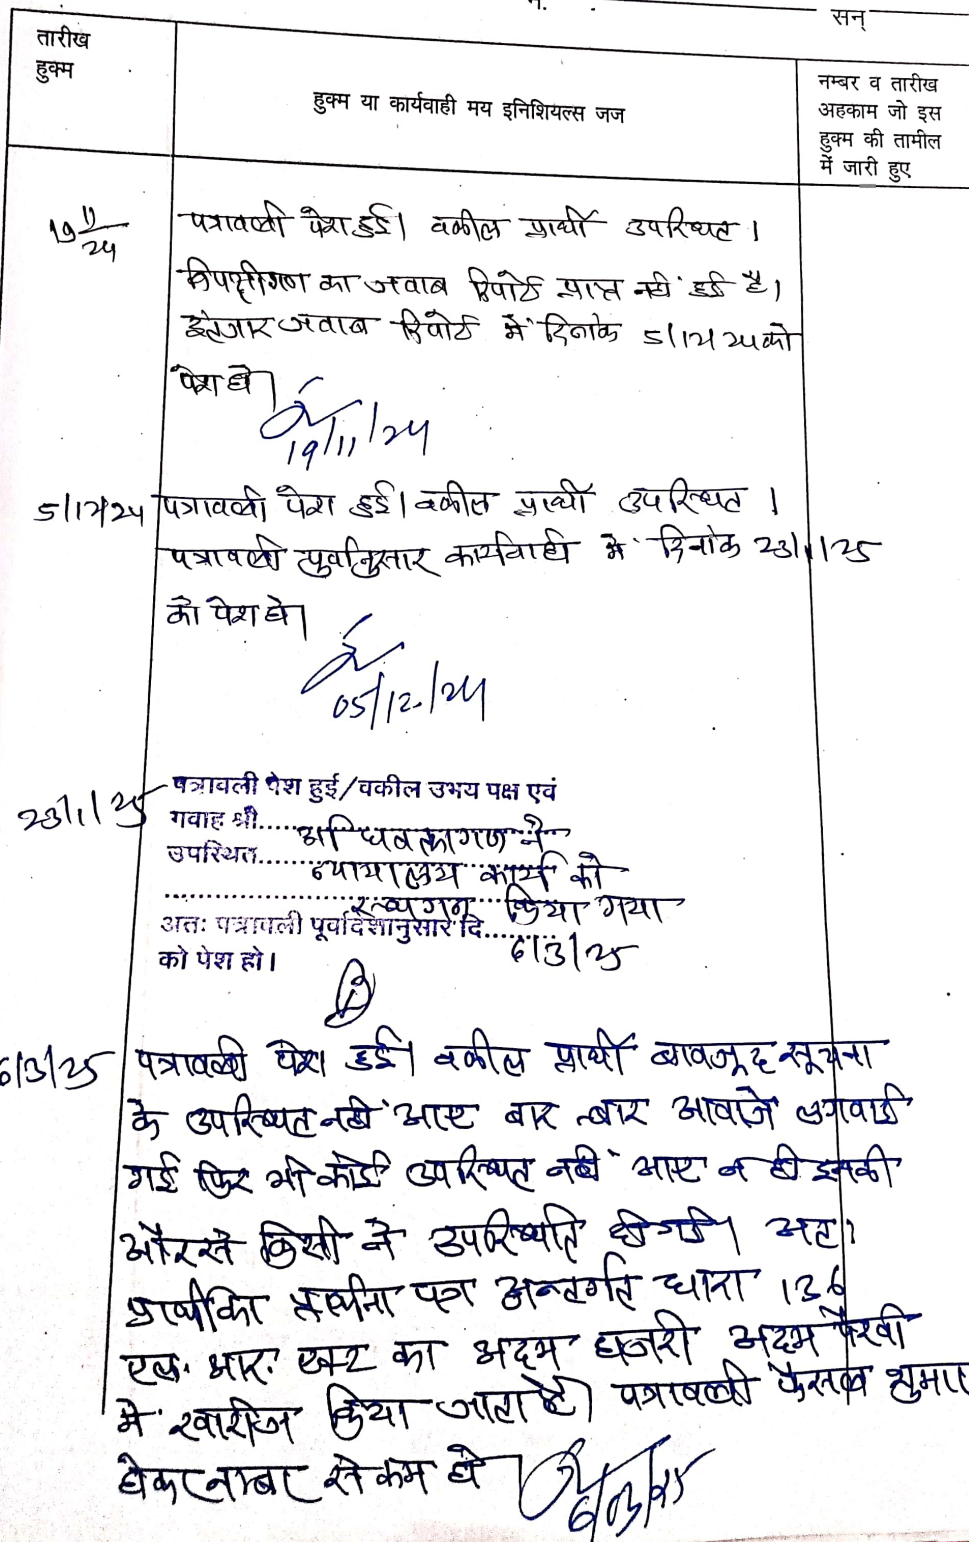 न. सन्
तारीख
हुक्म
हुक्म या कार्यवाही मय इनिशियल्स जज
नम्बर व तारीख
अहकाम जो इस
हुक्म की तामील
में जारी हुए
19/11/24
पत्रावली पेश हुई। वकील प्रार्थी उपस्थित।
विपक्षीगण का जवाब रिपोर्ट प्राप्त नहीं हुई है।
इंतजार जवाब रिपोर्ट में दिनांक 5/12/24 को
पेश हो।
19/11/24
5/12/24 पत्रावली पेश हुई। वकील प्रार्थी उपस्थित।
पत्रावली पुर्वानुसार कार्यवाही में दिनांक 23/1/25
को पेश हो।
05/12/24
23/1/25 पत्रावली पेश हुई/वकील उभय पक्ष एवं
गवाह श्री..... अधिवक्तागण ने
उपस्थित..... न्यायालय कार्य को
स्थगन किया गया
अतः पत्रावली पूर्वादेशानुसार दि..... 6/3/25
को पेश हो।
6/3/25 पत्रावली पेश हुई। वकील प्रार्थी बावजूद सूचना
के उपस्थित नहीं आए बार बार आवाजे लगवाई
गई फिर भी कोई उपस्थित नहीं आए न ही इनकी
और से किसी ने उपस्थिति दी गई। अतः
प्रार्थी का प्रार्थना पत्र अन्तर्गत धारा 136
एल. आर. एक्ट का अदम हाजरी अदम पैरवी
में खारीज किया जाता है। पत्रावली फैसल शुमार
होकर नम्बर से कम हो
6/03/25